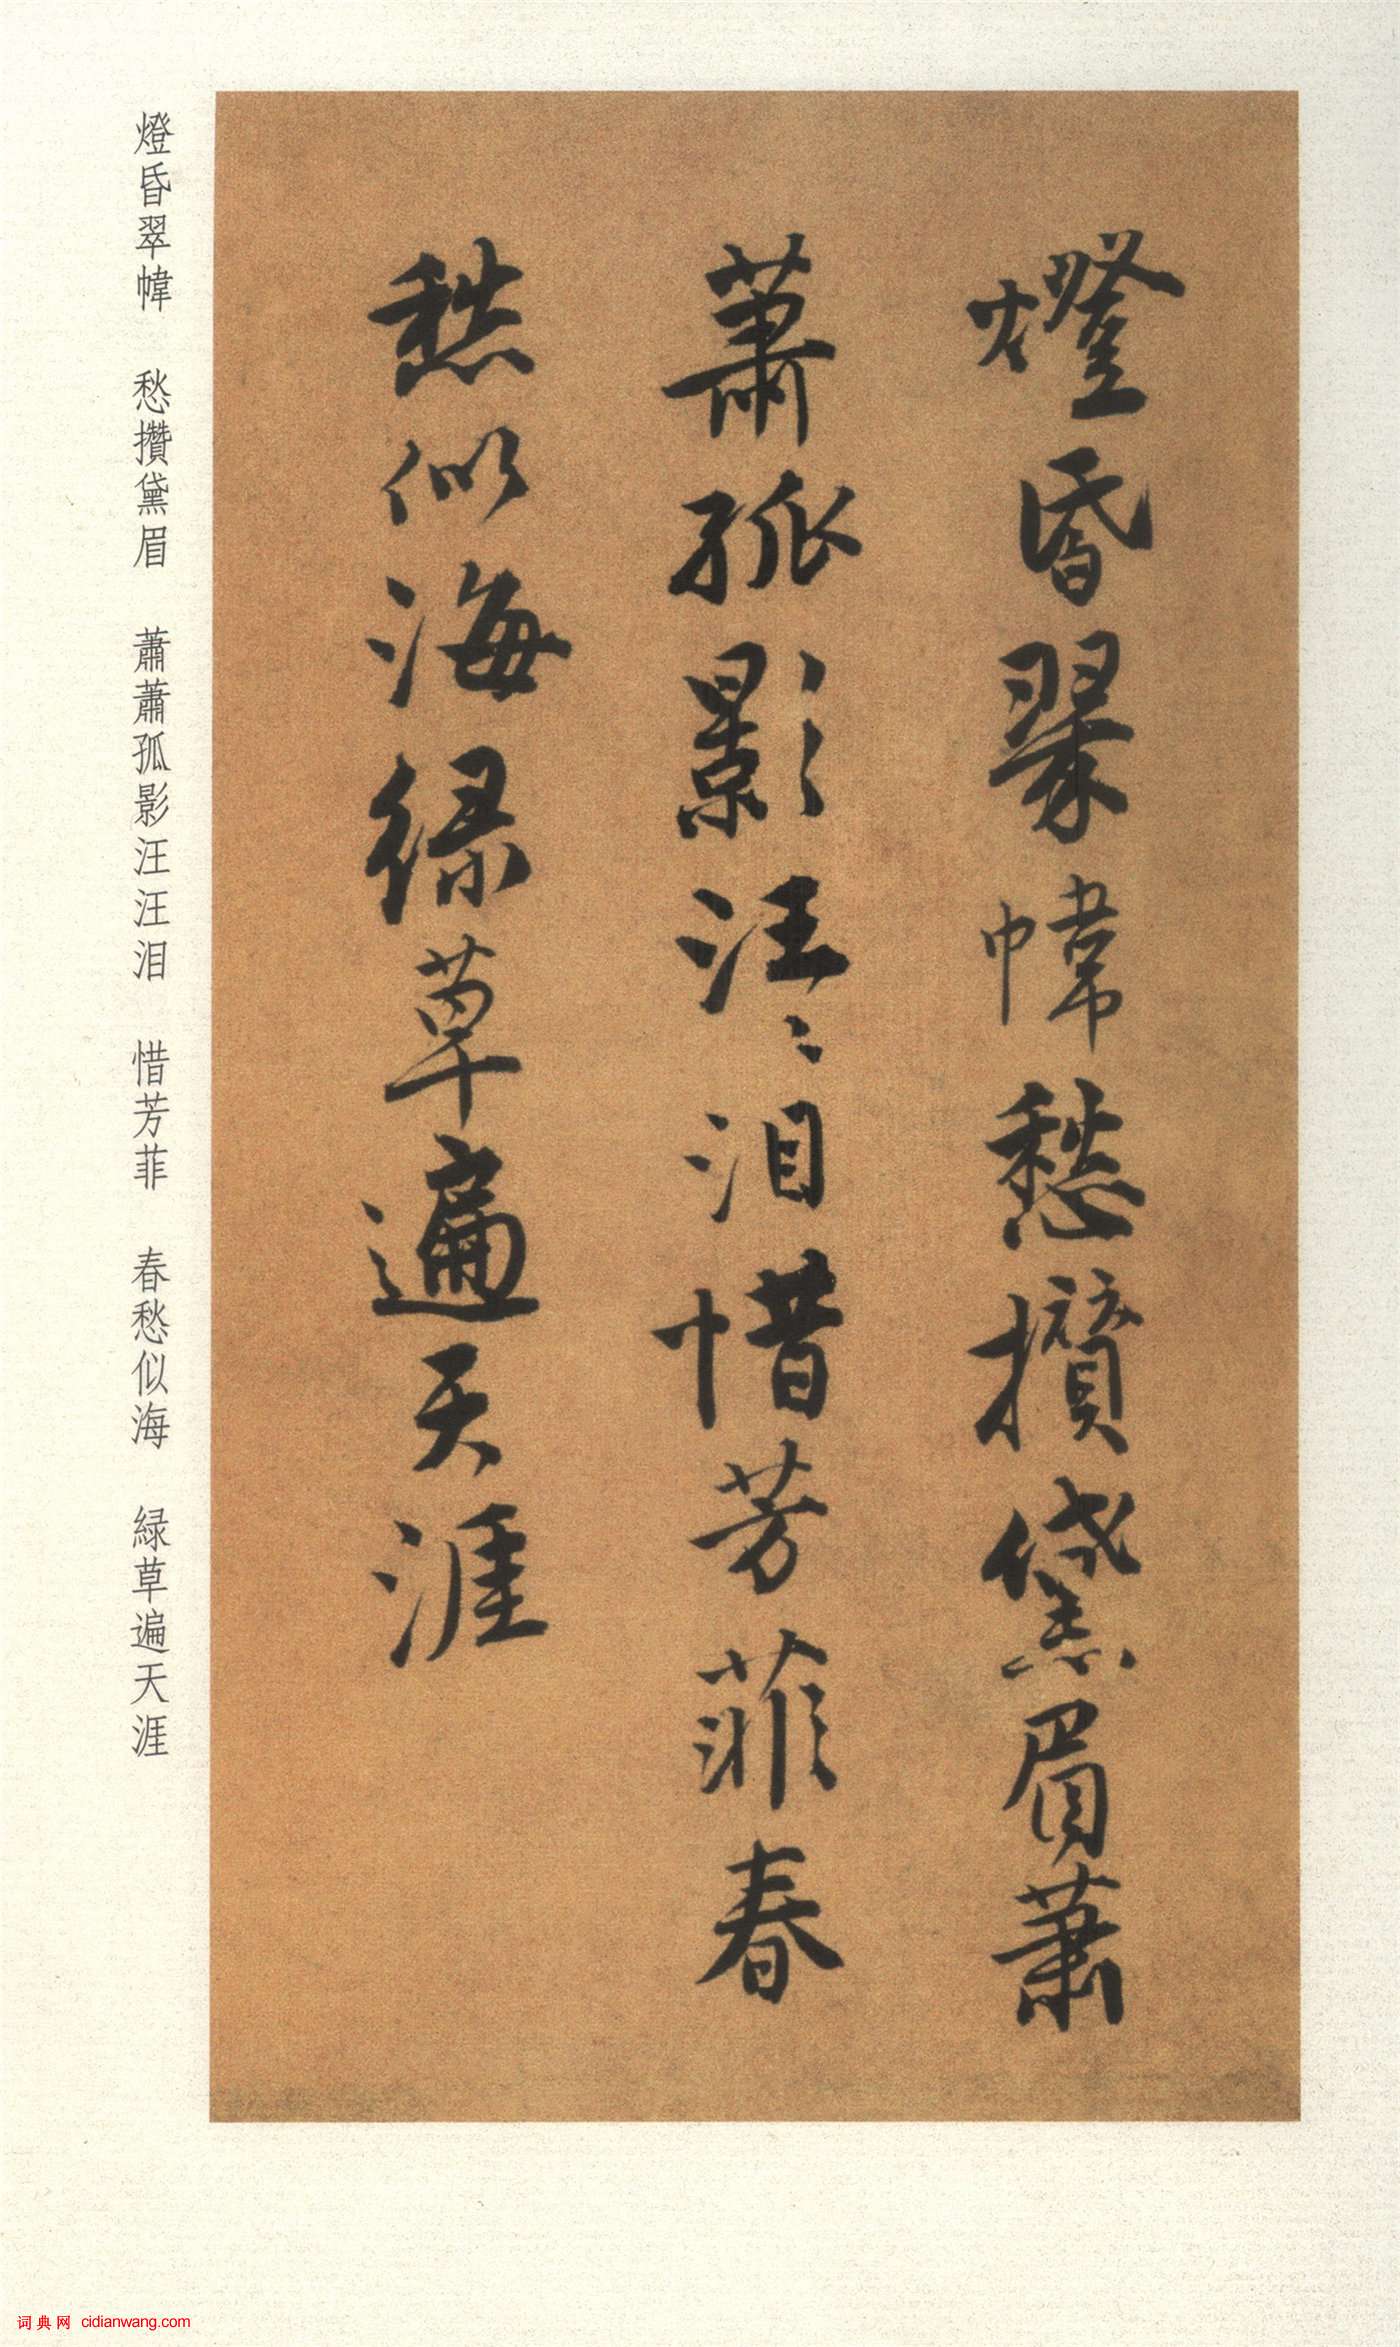 燈昏翠幃愁攢黛眉蕭
蕭孤影汪〻泪惜芳菲春
愁似海緑草遍天涯
燈昏翠幃　愁攢黛眉　蕭蕭孤影汪汪泪　惜芳菲　春愁似海　緑草遍天涯
词典网 cidianwang.com